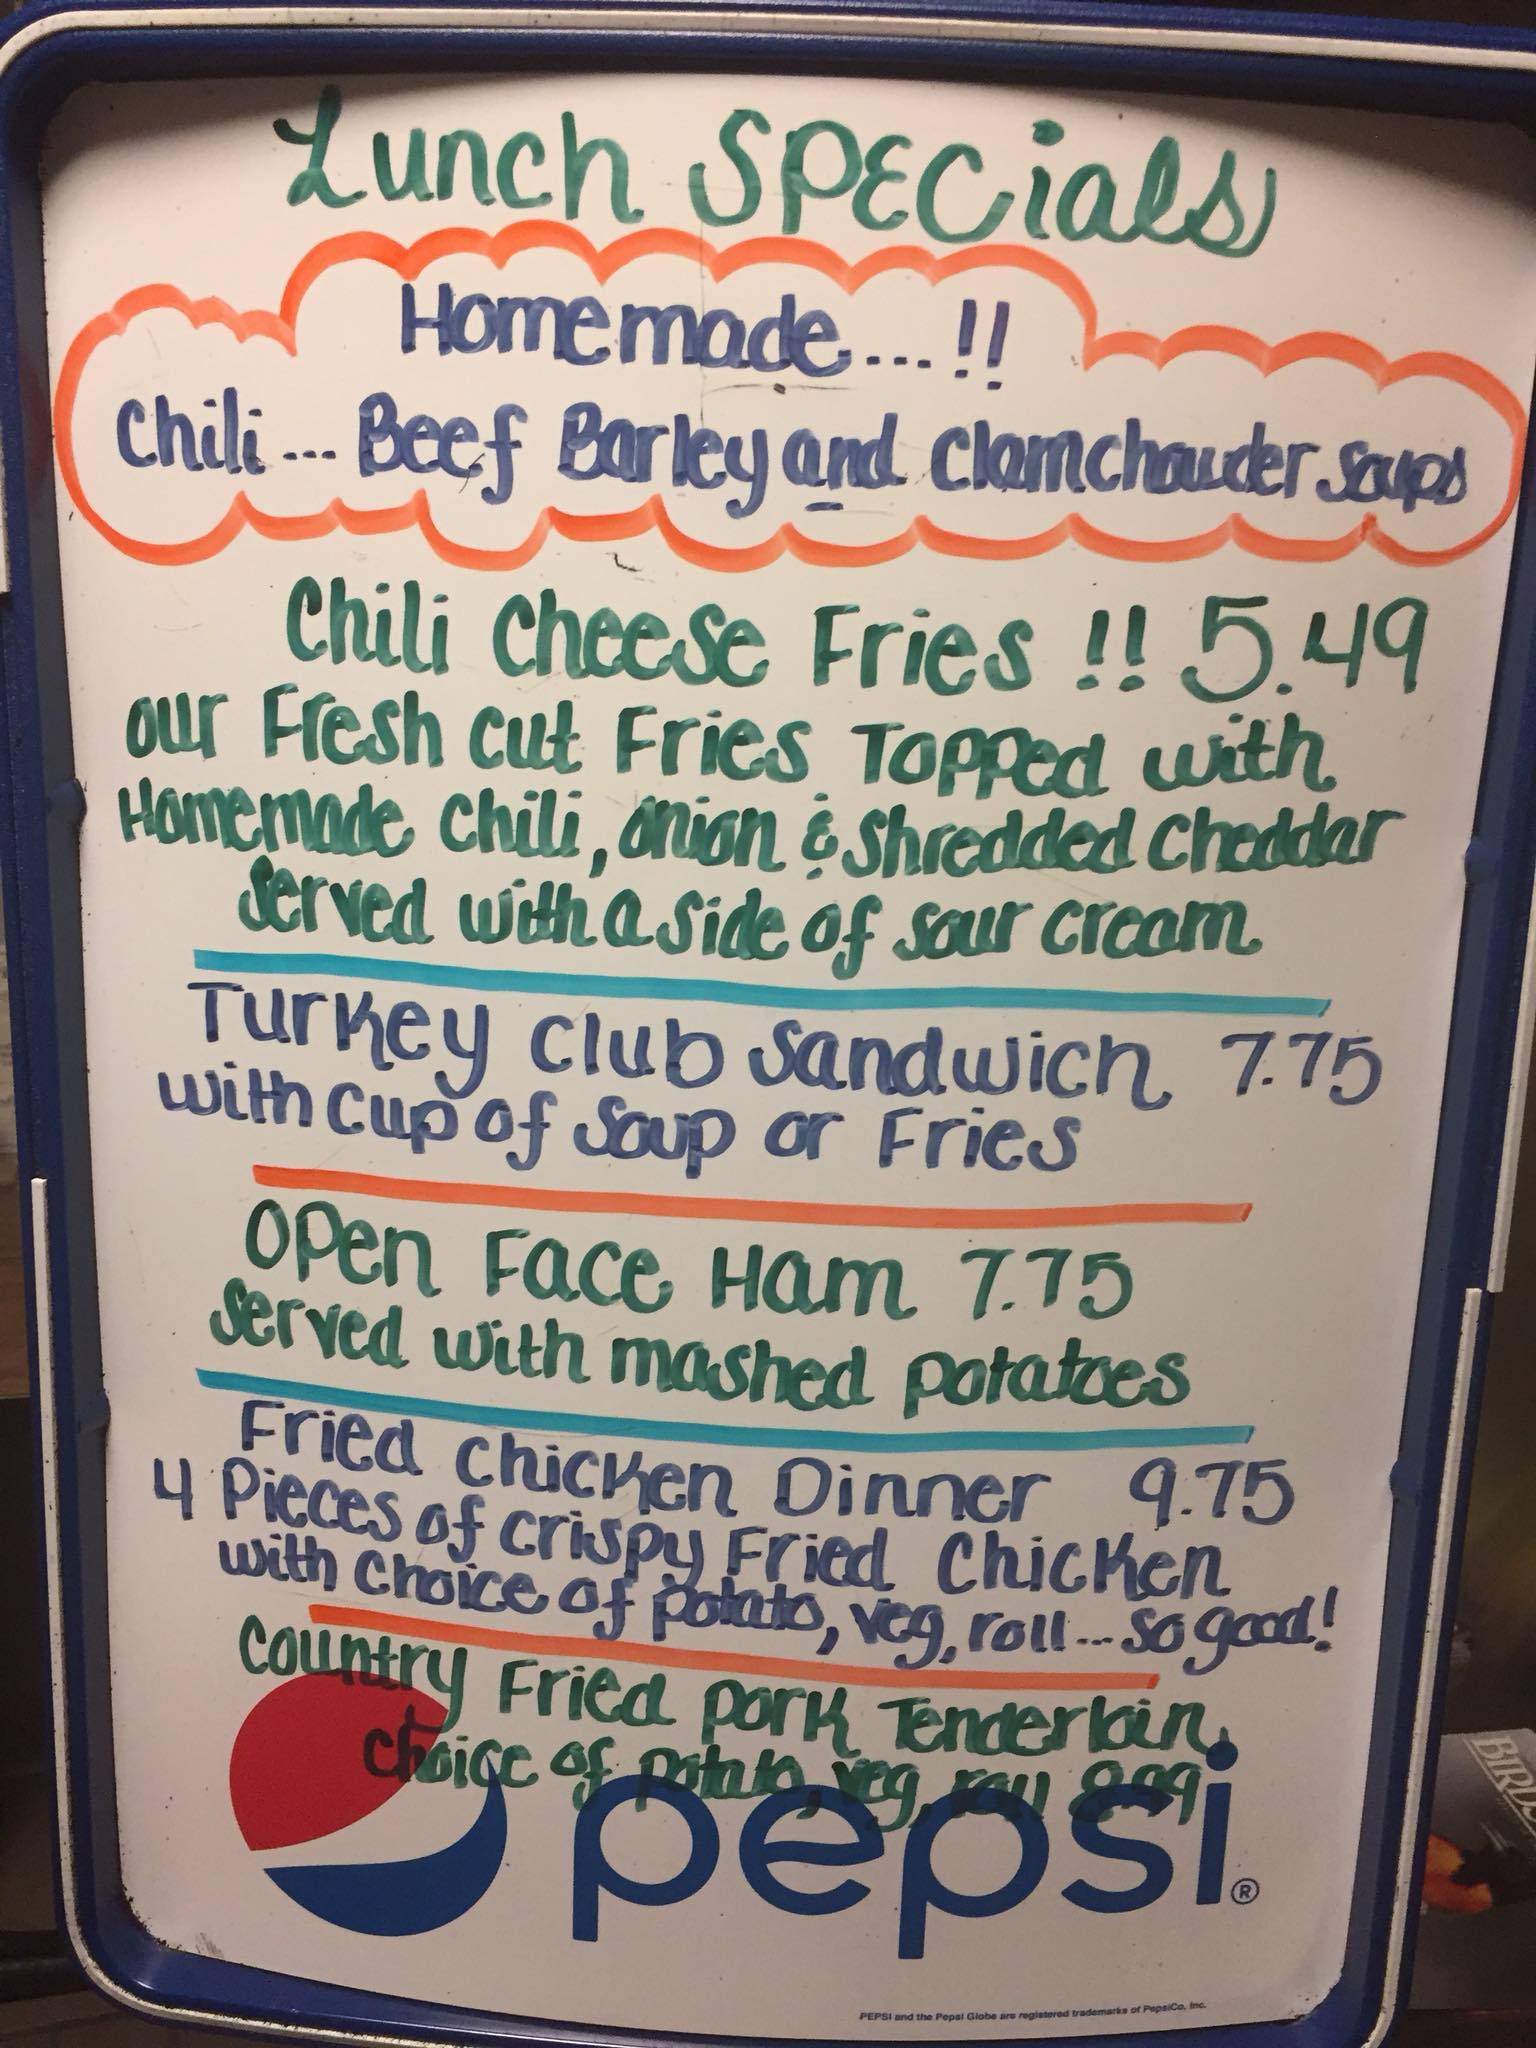 Lunch Specials
Homemade...!!
Chili... Beef Barley and Clamchowder soups
Chili Cheese Fries !! 5.49
our Fresh cut Fries Topped with
Homemade Chili, onion & shredded cheddar
served with a side of sour cream
Turkey Club Sandwich 7.75
with cup of Soup or Fries
Open Face Ham 7.75
served with mashed potatoes
Fried Chicken Dinner 9.75
4 Pieces of crispy Fried Chicken
with choice of potato, veg, roll... so good!
Country Fried Pork Tenderloin
choice of potato, veg, roll 8.99
pepsi®
PEPSI and the Pepsi Globe are registered trademarks of PepsiCo, Inc.
BIRD